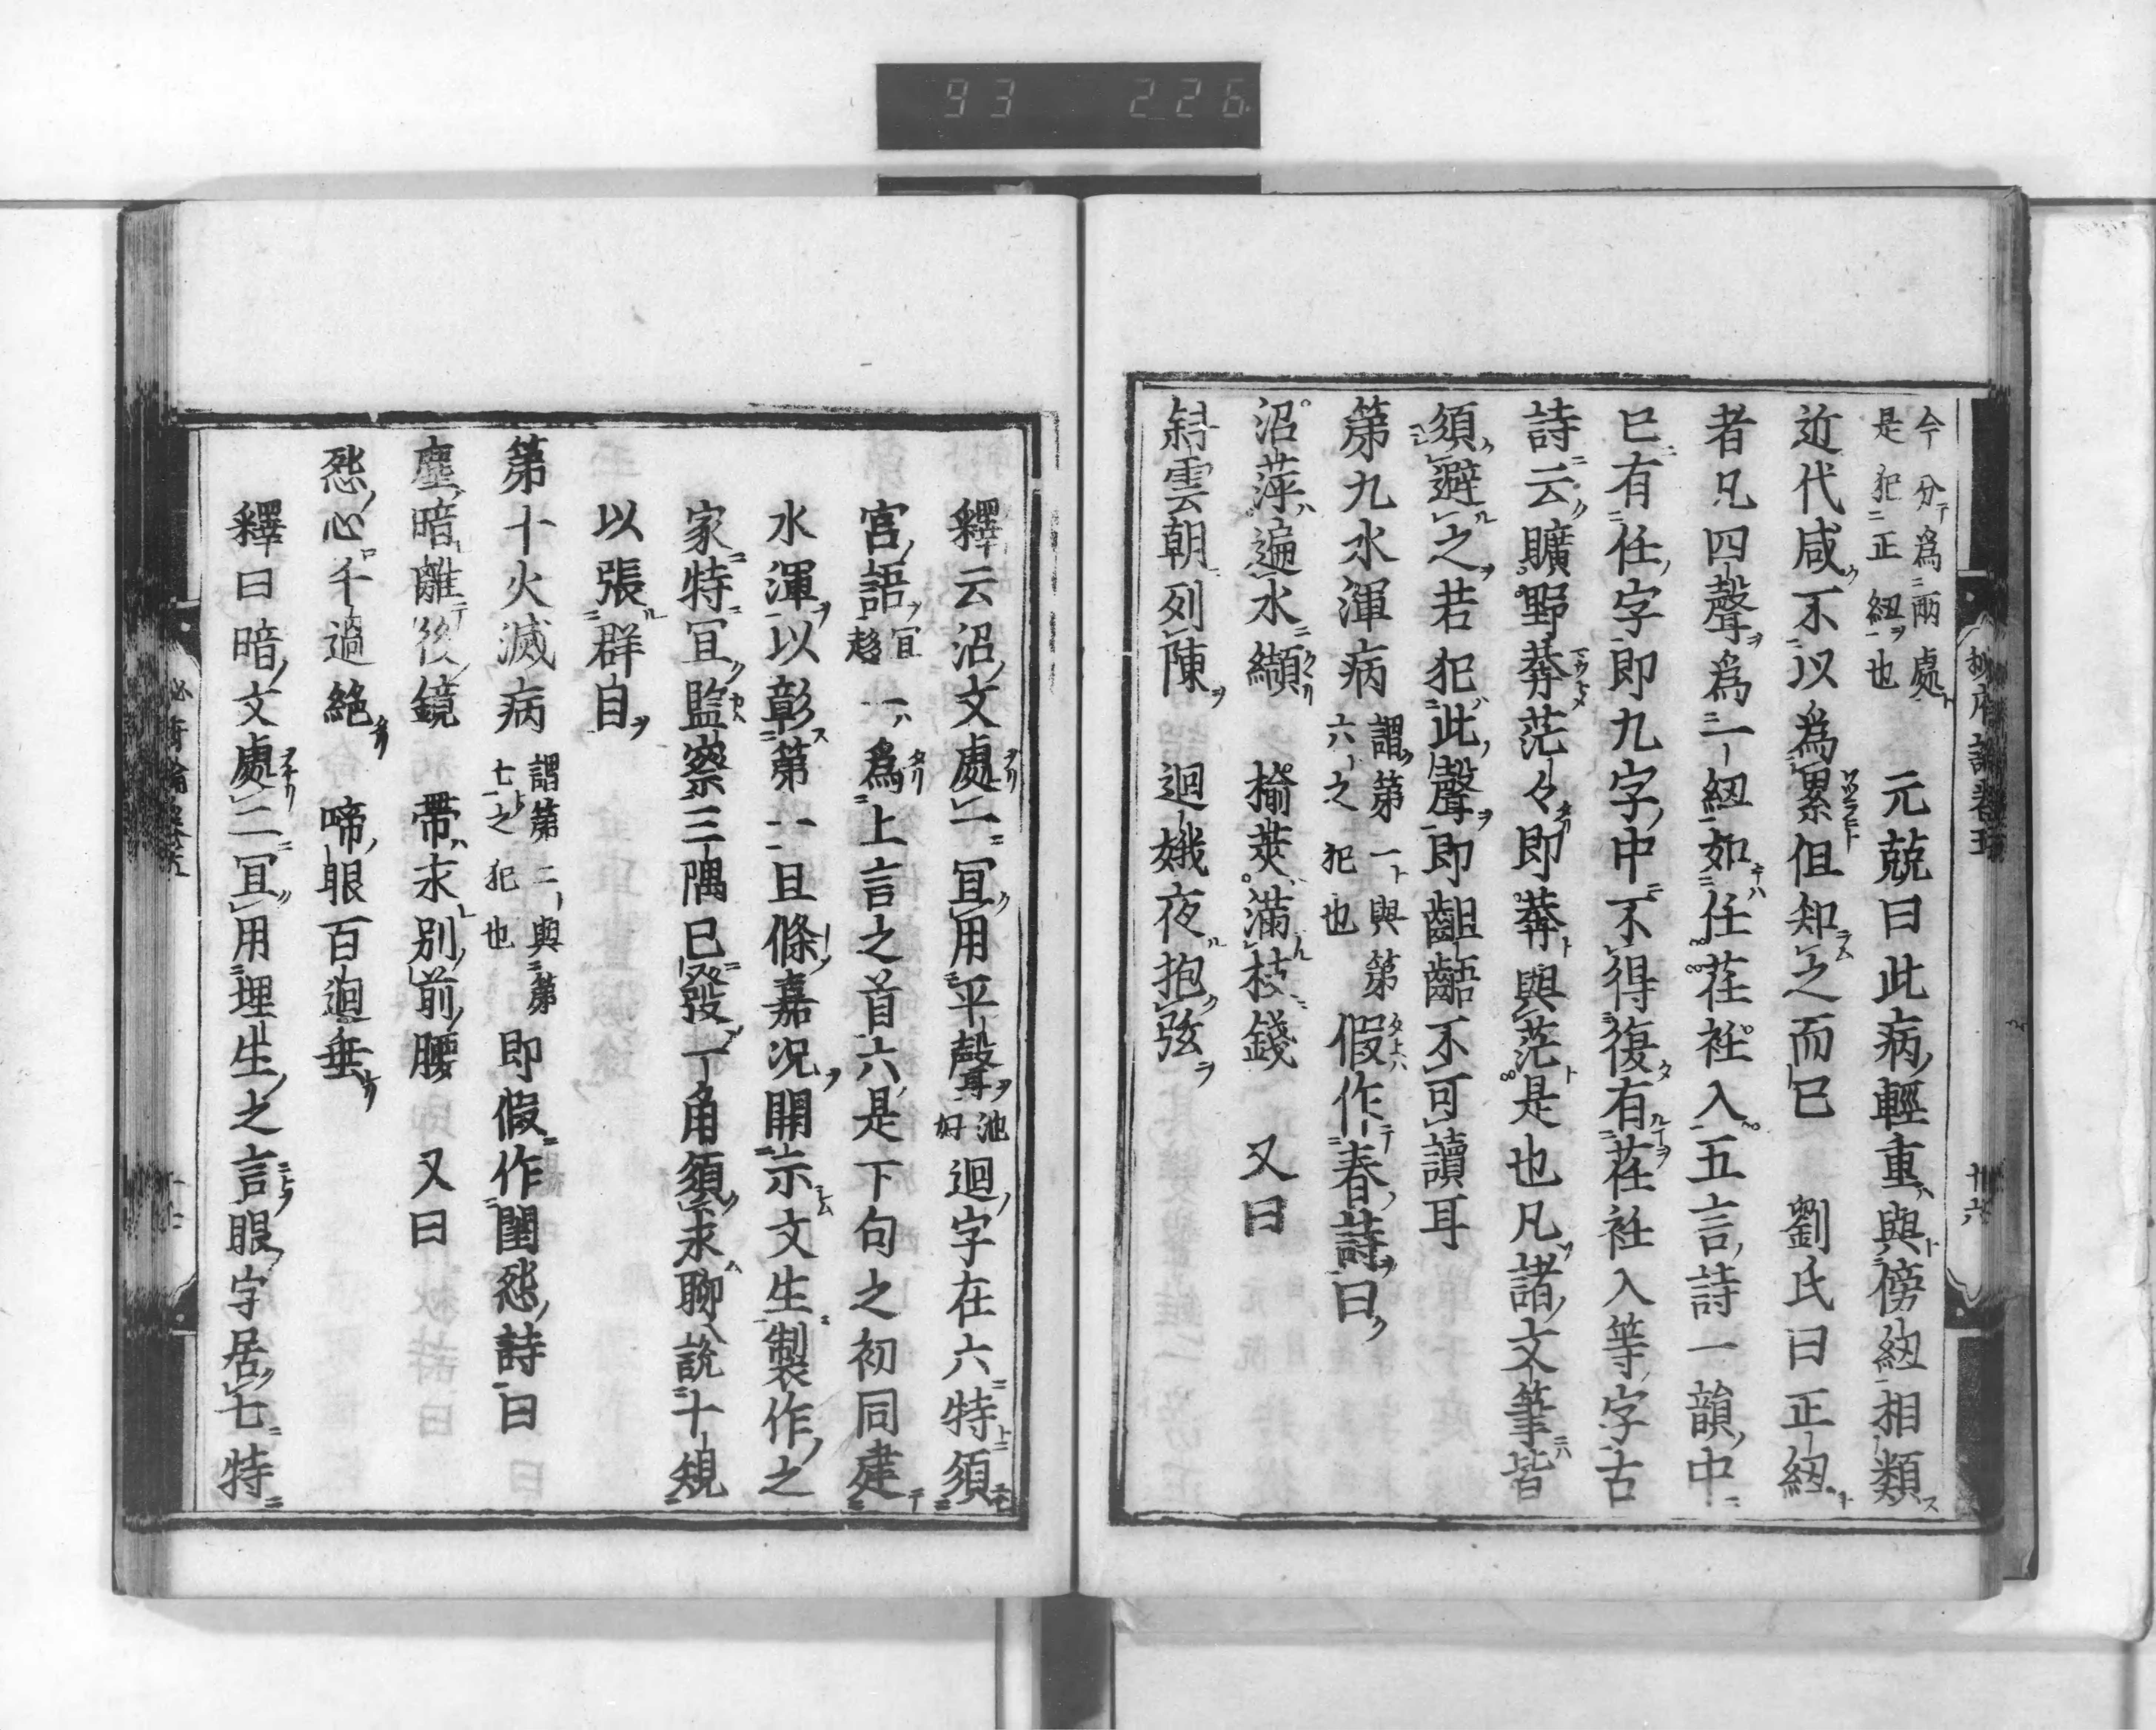 93 226
今分爲兩處是犯正紐也 元兢曰此病輕重與傍紐相類
近代咸不以爲累但知之而已 劉氏曰正紐
者凡四聲爲一紐如任荏衽入五言詩一韻中
已有任字即九字中不得復有荏衽入等字古
詩云曠野莽茫々即莽與茫是也凡諸文筆皆
須避之若犯此聲即齟齬不可讀耳
第九水渾病 謂第一與第六之犯也 假作春詩曰
沼萍遍水纈 榆莢滿枝錢 又曰
斜雲朝列陳 迴娥夜抱弦
釋云沼文處二冝用平聲 池好 迴字在六特須
宮語 冝趍 一爲上言之首六是下句之初同建
水渾以彰第一且條嘉況開示文生製作之
家特冝監察三隅已發一角須求聊説十規
以張群目
第十火滅病 謂第二與第七之犯也 即假作閨怨詩曰
塵暗離後鏡 帶永別前腰 又曰
怨心千過絶 啼眼百迴垂
釋曰暗文處二冝用埋生之言眼字居七特